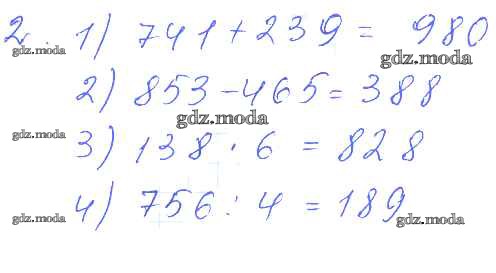 2. 1) 741 + 239 = 980
gdz.moda gdz.moda
2) 853 - 465 = 388
gdz.moda
gdz.moda 3) 138 · 6 = 828
4) 756 : 4 = 189
gdz.moda gdz.moda